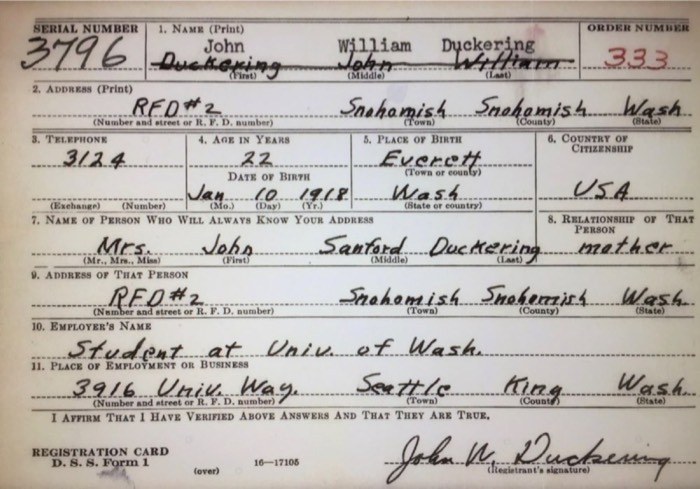 SERIAL NUMBER 1. NAME (Print) ORDER NUMBER
3796 John William Duckering 333
Duckering John William
(First) (Middle) (Last)
2. ADDRESS (Print)
RFD #2 Snohomish Snohomish Wash
(Number and street or R. F. D. number) (Town) (County) (State)
3. TELEPHONE 4. AGE IN YEARS 5. PLACE OF BIRTH 6. COUNTRY OF CITIZENSHIP
3124 22 Everett
DATE OF BIRTH (Town or county)
Jan 10 1918 Wash USA
(Exchange) (Number) (Mo.) (Day) (Yr.) (State or country)
7. NAME OF PERSON WHO WILL ALWAYS KNOW YOUR ADDRESS 8. RELATIONSHIP OF THAT PERSON
Mrs. John Sanford Duckering mother
(Mr., Mrs., Miss) (First) (Middle) (Last)
9. ADDRESS OF THAT PERSON
RFD #2 Snohomish Snohomish Wash
(Number and street or R. F. D. number) (Town) (County) (State)
10. EMPLOYER'S NAME
Student at Univ. of Wash.
11. PLACE OF EMPLOYMENT OR BUSINESS
3916 Univ. Way. Seattle King Wash.
(Number and street or R. F. D. number) (Town) (County) (State)
I AFFIRM THAT I HAVE VERIFIED ABOVE ANSWERS AND THAT THEY ARE TRUE.
REGISTRATION CARD
D. S. S. Form 1 (over) 16—17105 John W. Duckering
(Registrant's signature)